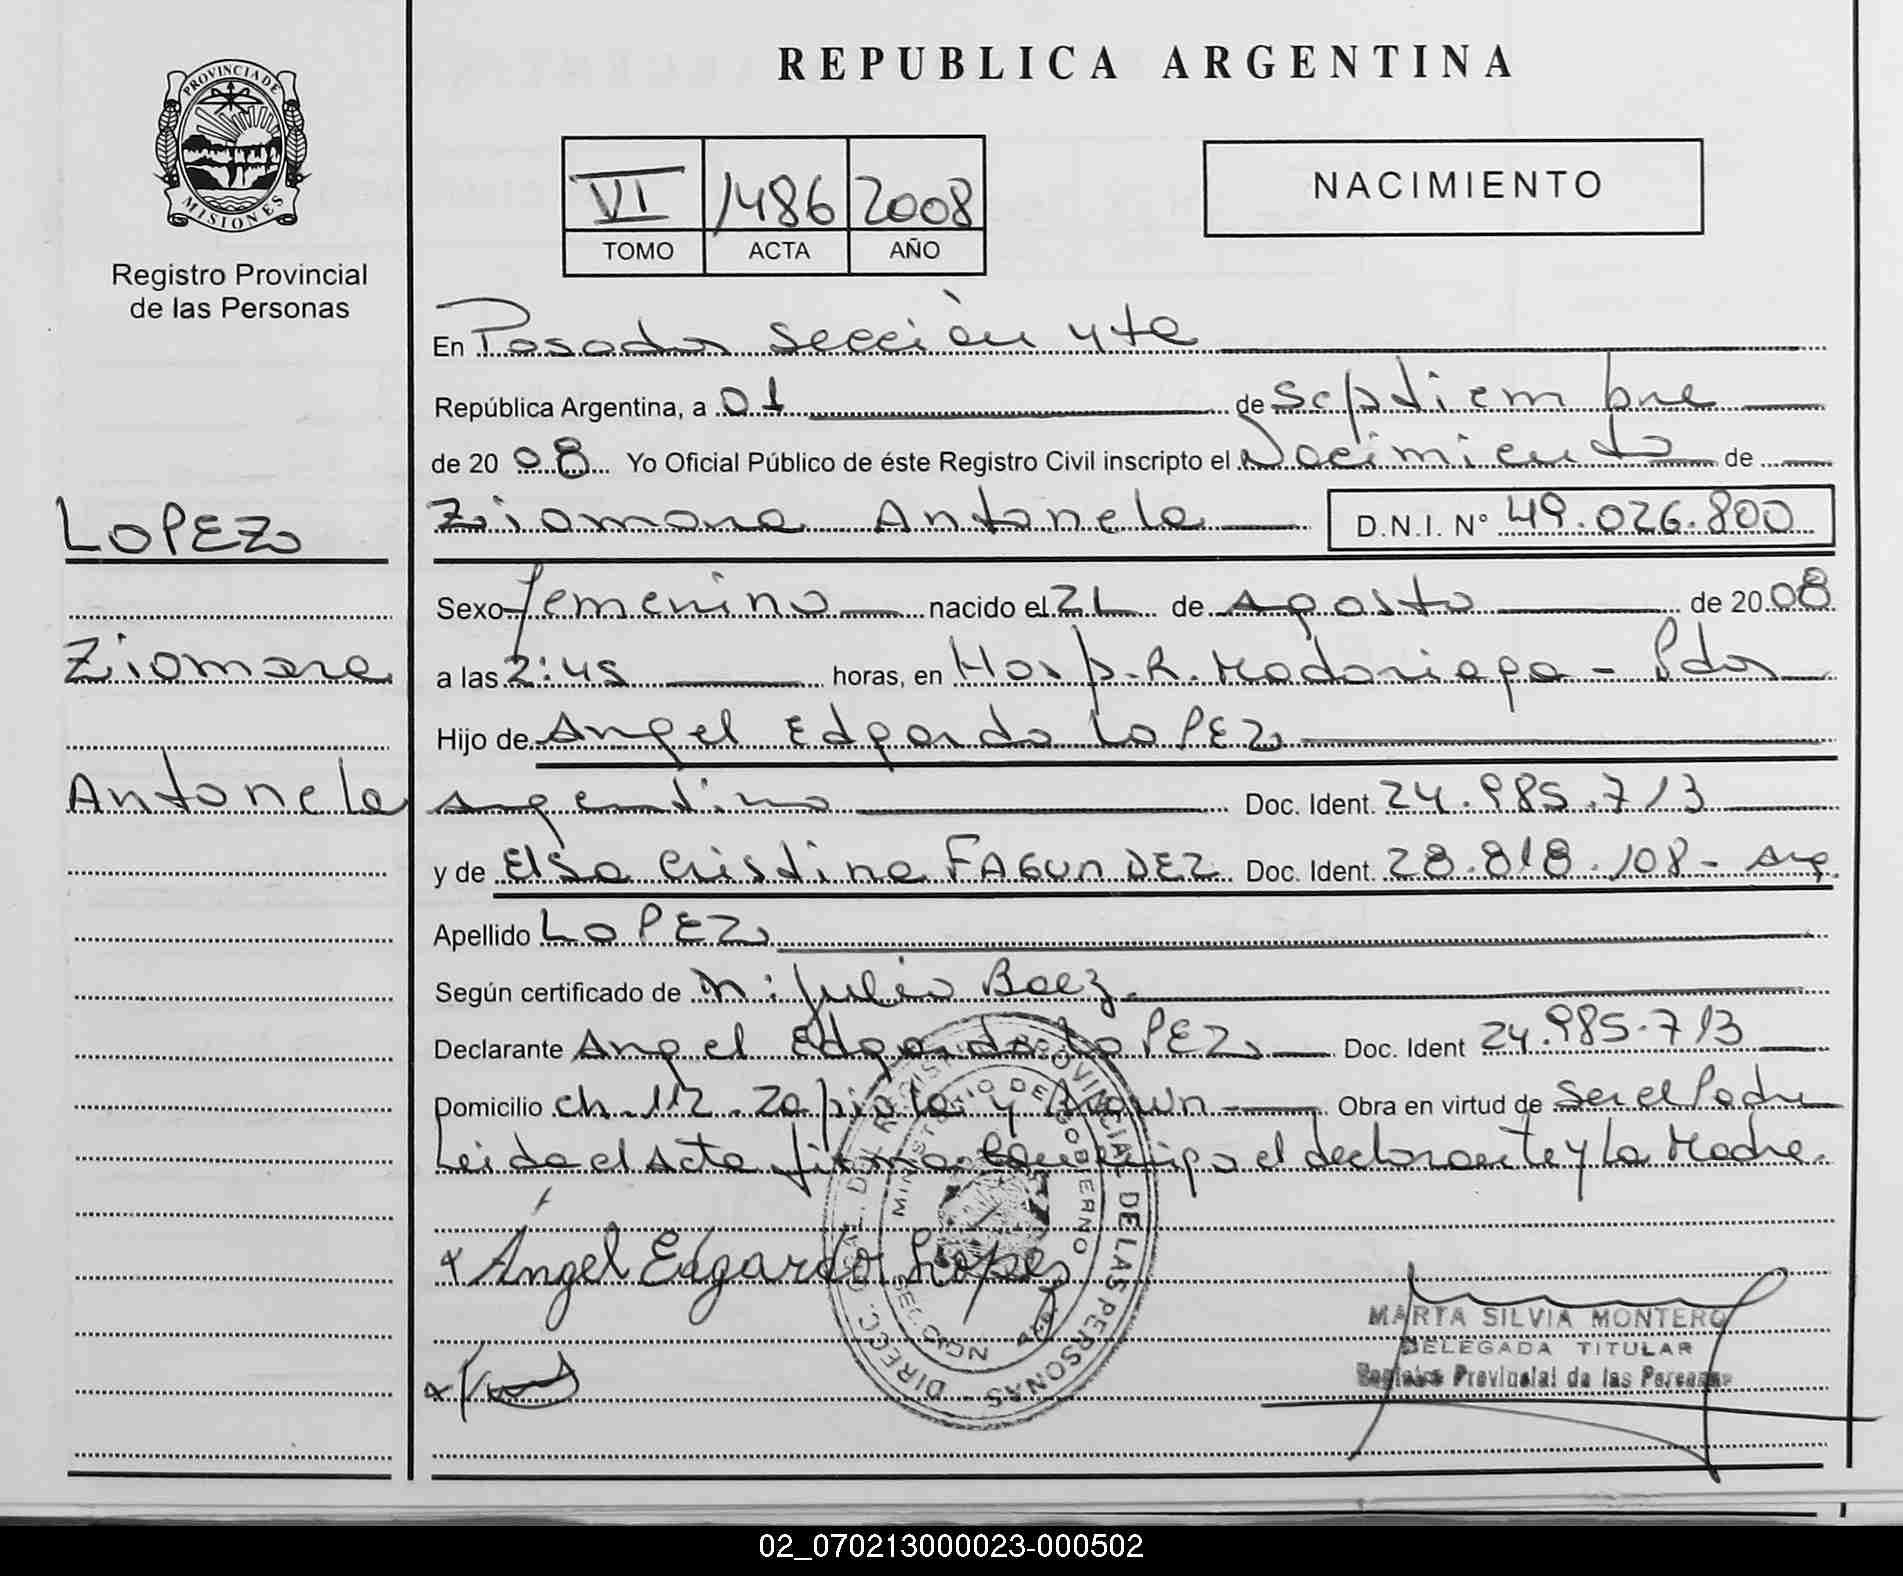 REPUBLICA ARGENTINA
PROVINCIA DE
MISIONES
Registro Provincial
de las Personas
VI 1486 2008
TOMO ACTA AÑO
NACIMIENTO
En Posadas sección 4ta
República Argentina, a 01 de septiembre
de 20 08 Yo Oficial Público de éste Registro Civil inscripto el Nacimiento de
LOPEZ
Ziomara Antonela D.N.I. N° 49.026.800
Sexo femenino nacido el 21 de agosto de 20 08
Ziomara
a las 2:45 horas, en Hosp. R. Madariaga - Pdas
Hijo de Angel Edgardo LOPEZ
Antonela
argentino Doc. Ident. 24.985.713
y de Elsa Cristina FAGUNDEZ Doc. Ident. 28.818.108 - Arg.
Apellido LOPEZ
Según certificado de Julio Baez.
Declarante Angel Edgardo LOPEZ Doc. Ident 24.985.713
Domicilio ch. 112. Zapiola y Brown Obra en virtud de ser el Padre
Leida el Acta firman conmigo el declarante y la Madre.
x Ángel Edgardo Lopez
DIRECC. GRAL. DEL REGISTRO PROVINCIAL DE LAS PERSONAS
MINISTERIO DE GOBIERNO
MARTA SILVIA MONTERO
DELEGADA TITULAR
Registro Provincial de las Personas
02_070213000023-000502